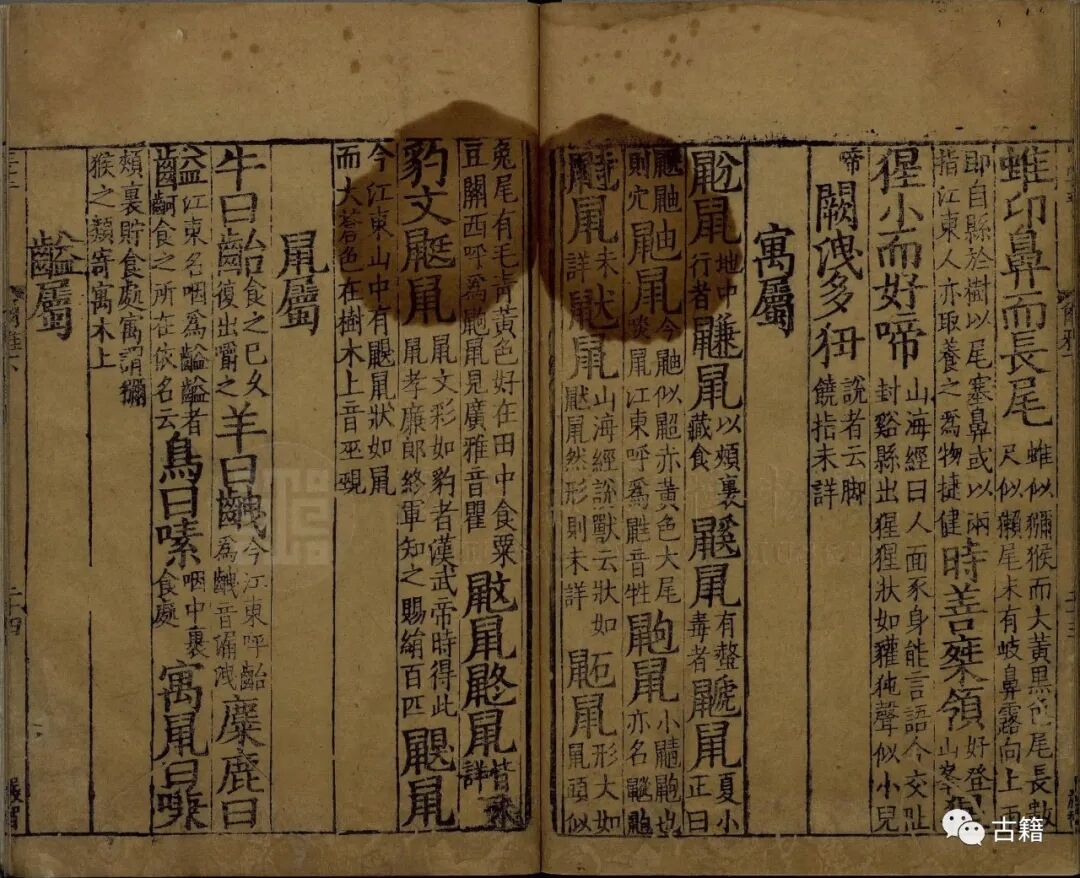 蜼卬鼻而長尾蜼似獼猴而大黃黑色尾長數尺似獺尾末有岐鼻露向上雨
即自縣於樹以尾塞鼻或以兩指江東人亦取養之爲物捷健時善椉領好登山峯猩
猩小而好啼山海經曰人面豕身能言語今交趾封谿縣出猩猩狀如貛㹠聲似小兒
啼闕洩多狃說者云脚饒指未詳
寓屬
鼢鼠地中行者鼸鼠以頰裏藏食鼷鼠有螫毒者鼶鼠夏小正曰
鼶鼬則穴鼬鼠今鼬似鼦赤黃色大尾啖鼠江東呼爲鼪音牲鼩鼠小鼱鼩也亦名
鼭鼠未詳鼣鼠山海經說獸云狀如鼣鼠然形則未詳鼫鼠形大如鼠頭似
兔尾有毛青黃色好在田中食粟豆關西呼爲鼩鼠見廣雅音瞿鼤鼠鼨鼠皆未詳
豹文鼮鼠鼠文彩如豹者漢武帝時得此鼠孝廉郎終軍知之賜絹百匹鼳鼠
今江東山中有鼳鼠狀如鼠而大蒼色在樹木上音巫覡
鼠屬
牛曰齝食之已久復出嚼之羊曰齥今江東呼齝爲齥音漏洩麋鹿曰
齸江東名咽爲齸齸者齝食之所在依名云鳥曰嗉咽中裹食處寓鼠曰嗛
頰裏貯食處寓謂獼猴之類寄寓木上
齸屬
二十四
古籍